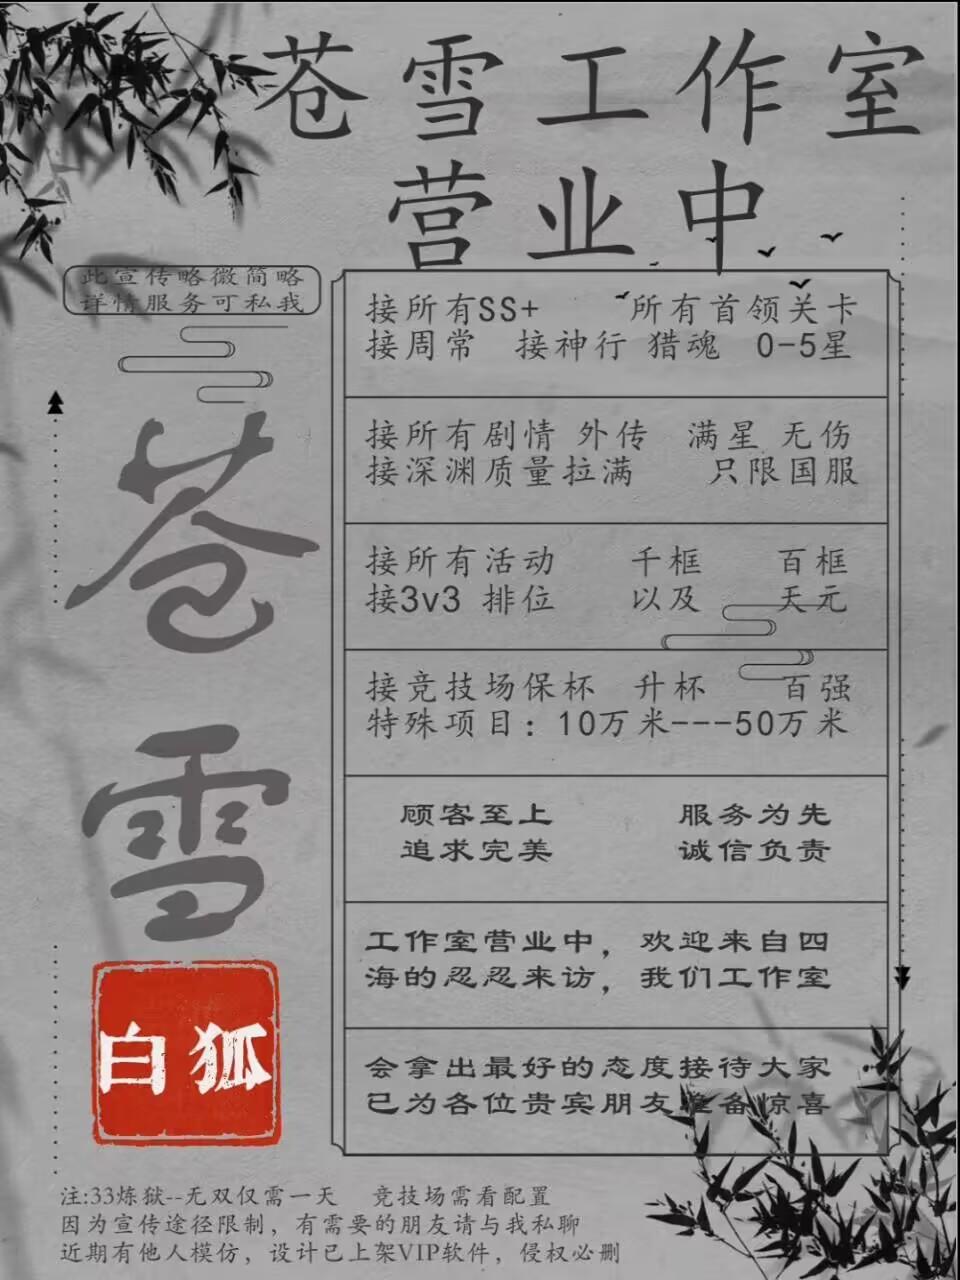 苍雪工作室
营业中
此宣传略微简略
详情服务可私我
苍雪
白狐
接所有SS+ 所有首领关卡
接周常 接神行 猎魂 0-5星
接所有剧情 外传 满星 无伤
接深渊质量拉满 只限国服
接所有活动 千框 百框
接3v3 排位 以及 天元
接竞技场保杯 升杯 百强
特殊项目：10万米---50万米
顾客至上 服务为先
追求完美 诚信负责
工作室营业中，欢迎来自四
海的忍忍来访，我们工作室
会拿出最好的态度接待大家
已为各位贵宾朋友准备惊喜
注:33炼狱--无双仅需一天 竞技场需看配置
因为宣传途径限制，有需要的朋友请与我私聊
近期有他人模仿，设计已上架VIP软件，侵权必删